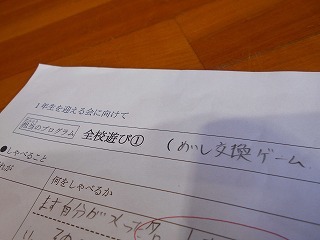 1年生を迎える会に向けて
担当のプログラム 全校遊び① (めいし交換ゲーム
●しゃべること
れが 何をしゃべるか
まず自分が